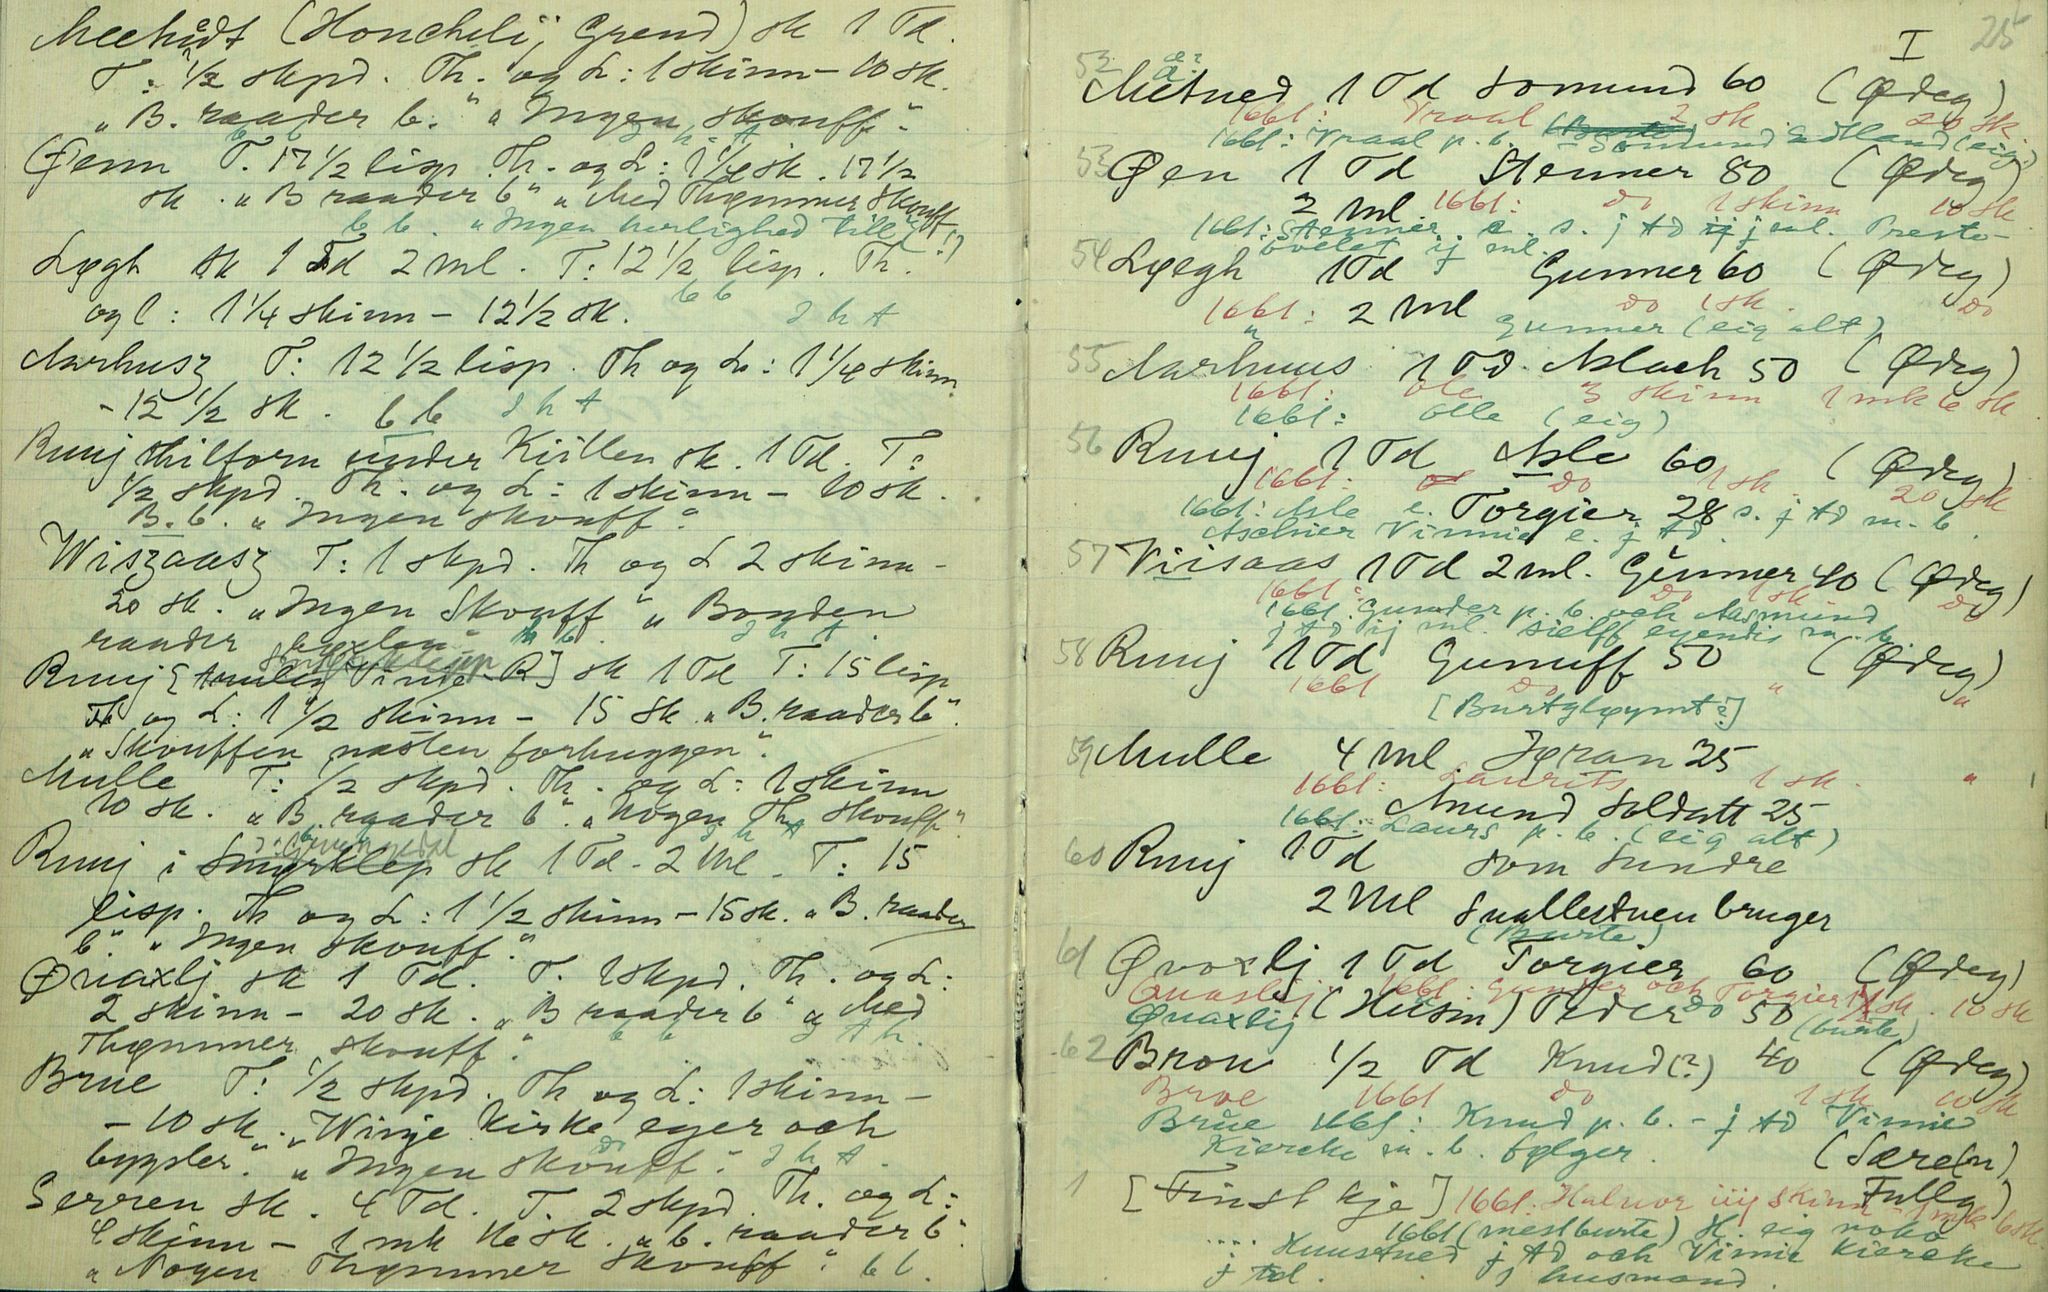 Meetvidt (Honchelij, Grend) sk 1 Td.
T: 1/2 skpd. Th. og L: 1 skinn - 10 sk.
"B. raader b." "Ingen skouff".
Øenn T. 17 1/2 lisp Th. og L: 1 3/4 sk. 17 1/2
sk. "B raader b" "Med Thømmer skouff
b b. "Ingen herlighed till" (!)
Løgh sk 1 Td 2 ml. T: 12 1/2 lisp. Th.
og l: 1 1/4 skinn - 12 1/2 sk. b b d h t
Aarhusz T: 12 1/2 lisp. Th og L: 1 1/4 skinn
- 12 1/2 sk. b b d h t
Ruuj thilforn under Kiillen sk. 1 Td. T:
1/2 skpd. Th. og L: 1 skinn - 10 sk.
B. b. "Ingen skouff".
Wiszaasz T: 1 skpd. Th og L 2 skinn -
20 sk. "Ingen Skouff" "Bonden
raader bygslen" b b. d h t.
Ruuj [ Vinie R] sk 1 Td T: 15 lisp
Th og L: 1 1/2 skinn - 15 sk "B. raader b".
"Skouffen næsten forhuggen".
Mulle T: 1/2 skpd. Th. og L: 1 skinn
10 sk. "B. raader b". "Nogen Th. skouff".
Ruuj i Smørklep sk 1 Td - 2 Ml. T: 15
lisp. Th og L: 1 1/2 skinn - 15 sk. "B. raader
b". "Ingen skouff".
Øuaxlj sk 1 Td. T. 1 skpd. Th. og L:
2 skinn - 20 sk. "B raader b" "Med
Thømmer skouff". b b d t h.
Brue T: 1/2 skpd. Th og L: 1 skinn -
- 10 sk. "Winje Kirke eger och
bygsler". "Ingen skouff". d h t.
Serren sk. 4 Td. T. 2 skpd. Th. og L:
4 skinn - 1 mk 16 sk. "b. raader b".
"Nogen Thømmer skouff". b b.
I 25
52 Metned 1 Td Somund 60 (Ødeg)
1661: Vraal 2 sk 20 sk
1661: Vraal p. b. Somund Edland (eig.)
53 Øen 1 Td Stenner 80 (Ødeg)
2 ml 1661: do 1 skinn 10 sk
1661: Stenner e. s. j td ij ml. Preste-
bolet ij ml.
54 Løegh 1 Td Gunner 60 (Ødeg)
1661: 2 Ml do 1 sk. do
" Gunner (eig alt)
55 Aarhuus 1 Td. Aslach 50 (Ødeg)
1661: Ole 3 skinn 1 mk 6 sk
1661: Olle (eig)
56 Ruuj 1 Td Asle 60 (Ødeg)
1661: do 1 sk. 20 sk
1661: Asle e. Torgier 28 s. j td m. b.
Aschier Vinnie e. j td.
57 Viisaas 1 Td 2 ml. Gunner 40 (Ødeg)
1661: do 1 sk do
1661: Gunder p. b. och Aasmund
j td ij ml. sielff eyendis m. b.
58 Ruuj 1 Td Gunuff 50 (Ødeg)
1661 do " "
[Burtgløymt?]
59 Mulle 4 ml. Jøran 25
1661: Laurits 1 sk. "
Amund Soldatt 25
1661: Laurs p. b. (eig alt)
60 Ruuj 1 Td som Sundre
2 Ml Suallestuen bruger
(Burte)
61 Øvoxlj 1 Td Torgier 60 (Ødeg)
Quaslij 1661: Gunder och Torgier 1 sk. 10 sk
Øuaxlig (Husm) Peder do 50 (burte)
62 Brou 1/2 Td Knud (?) 40 (Ødeg)
Broe 1661 do 1 sk 10 sk
Brue 1661: Knud p. b. - j td Vinnie
Kiercke m. b. følger.
(Sære(n)
1 [Finst kje] 1661: Haluor iiij skinn - 1 mk 16 sk. Fullg)
1661 (mest burte) H. eig noko
.... Huustned j td och Vinnie Kiercke
j td. 1 husmand.